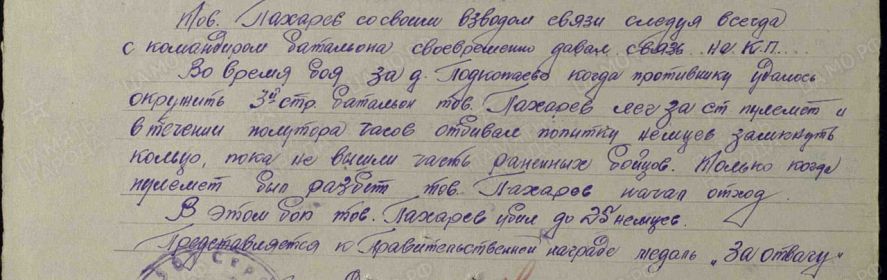 Тов. Пахарев со своим взводом связи следуя всегда
с командиром батальона своевременно давал связь на К.П....
Во время боя за д. Подкопаево когда противнику удалось
окружить 3й стр. батальон тов. Пахарев лег за ст пулемет и
в течении полутора часов отбивал попытку немцев замкнуть
кольцо, пока не вышли часть раненных бойцов. Только когда
пулемет был разбит тов. Пахарев начал отход.
В этом бою тов. Пахарев убил до 25 немцев.
Представляется к Правительственной награде медаль „За отвагу"